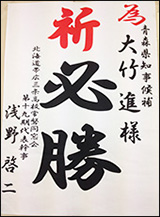 為
青森県知事候補
大竹進様
祈
必勝
北海道帯広三条高校青葉同窓会
第十九期代表幹事
浅野啓二